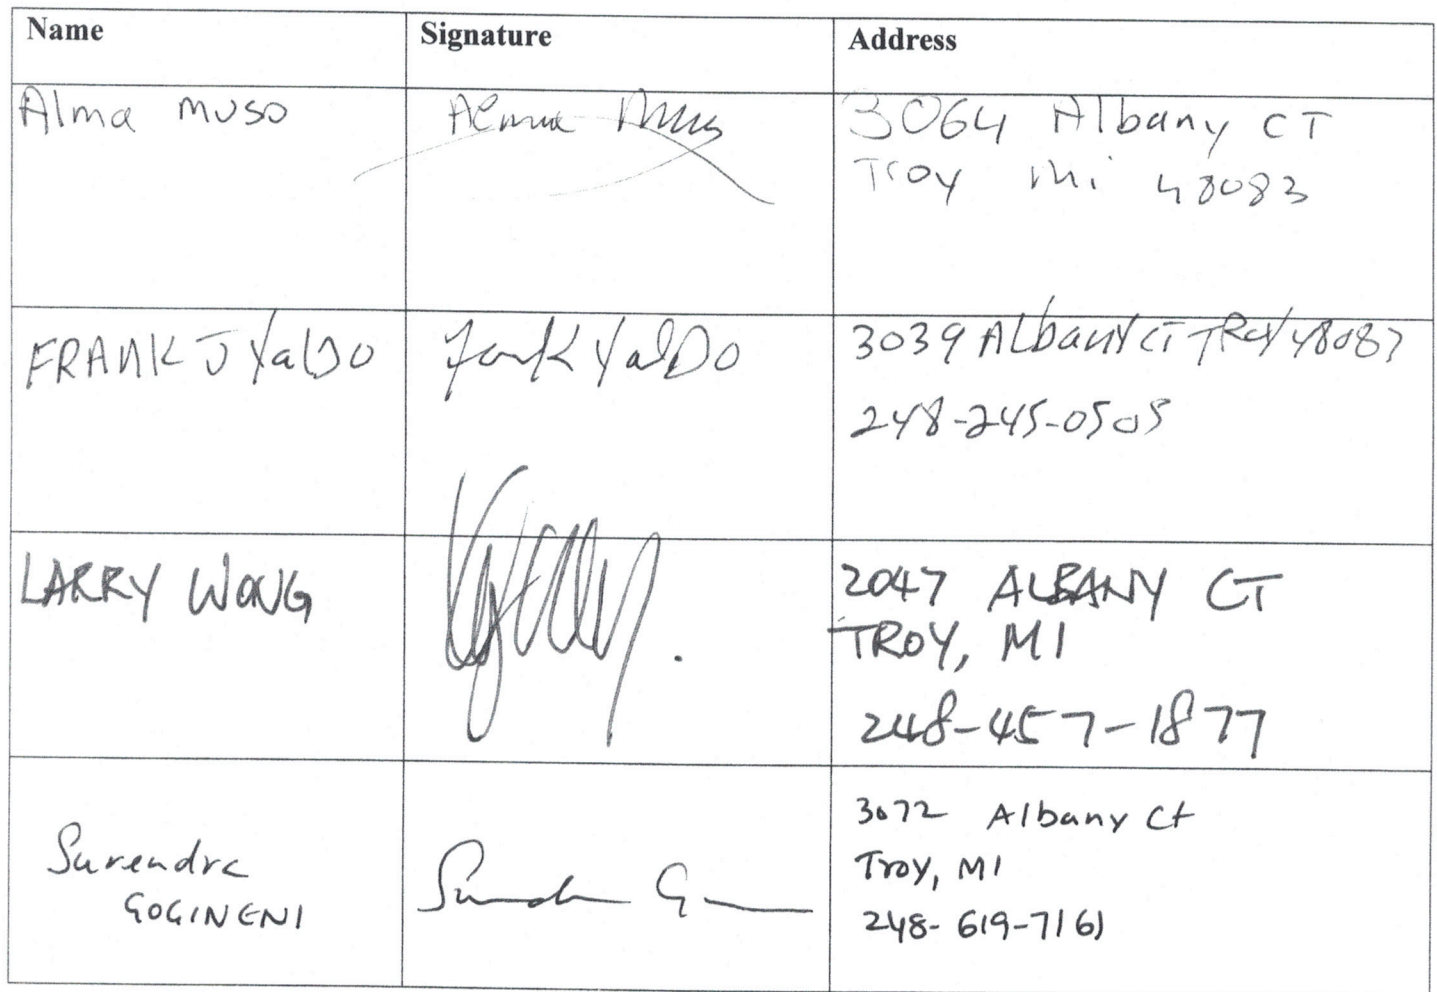 Name Signature Address
Alma muso Alma Mus 3064 Albany CT
Troy mi 48083
FRANK J YalDo Frank YalDo 3039 Albany CT TRoy 48083
248-245-0505
LARRY WONG 2047 ALBANY CT
TROY, MI
248-457-1877
3072 Albany Ct
Surendra Troy, MI
GOGINENI 248-619-7161